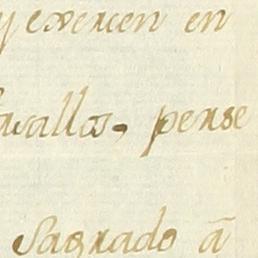 y exercen en
vasallos, pense
Sagrado á